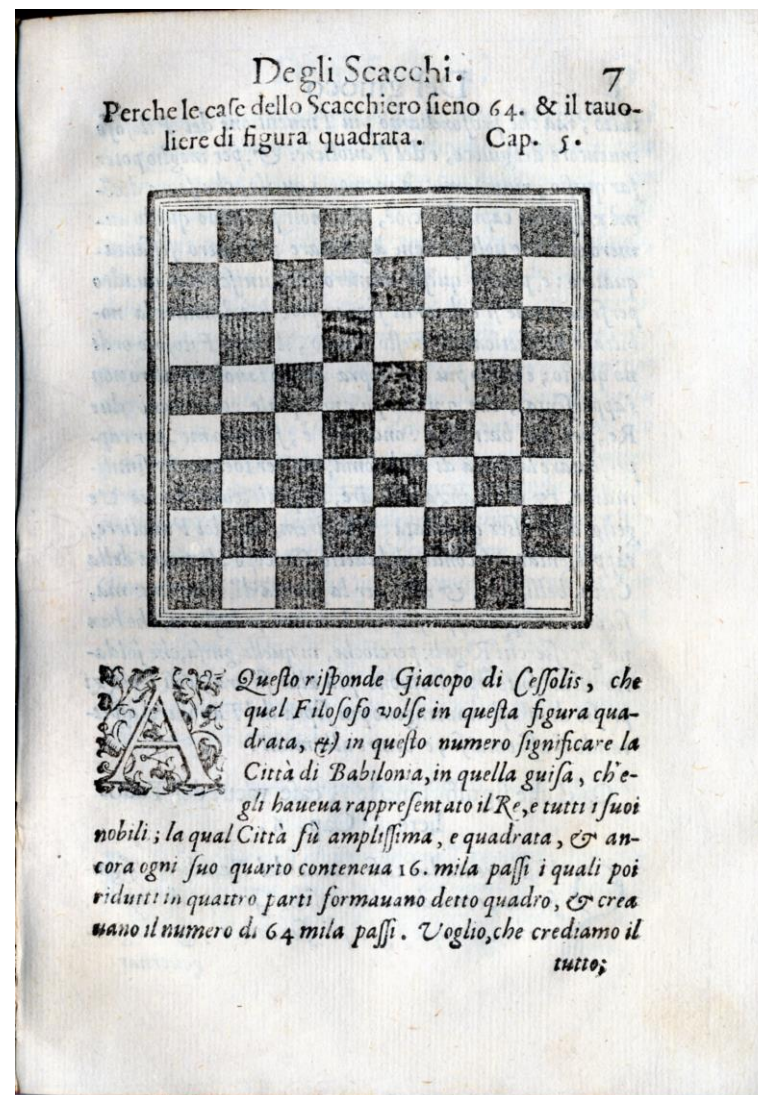 Degli Scacchi. 7
Perche le case dello Scacchiero sieno 64. & il tauo-
liere di figura quadrata. Cap. 5.
A Questo risponde Giacopo di Cessolis, che
quel Filosofo volse in questa figura qua-
drata, & in questo numero significare la
Città di Babilonia, in quella guisa, ch'e-
gli haueua rappresentato il Re, e tutti i suoi
nobili; la qual Città fù amplissima, e quadrata, & an-
cora ogni suo quarto conteneua 16. mila passi i quali poi
ridutti in quattro parti formauano detto quadro, & crea
uano il numero di 64 mila passi. Voglio, che crediamo il
tutto;